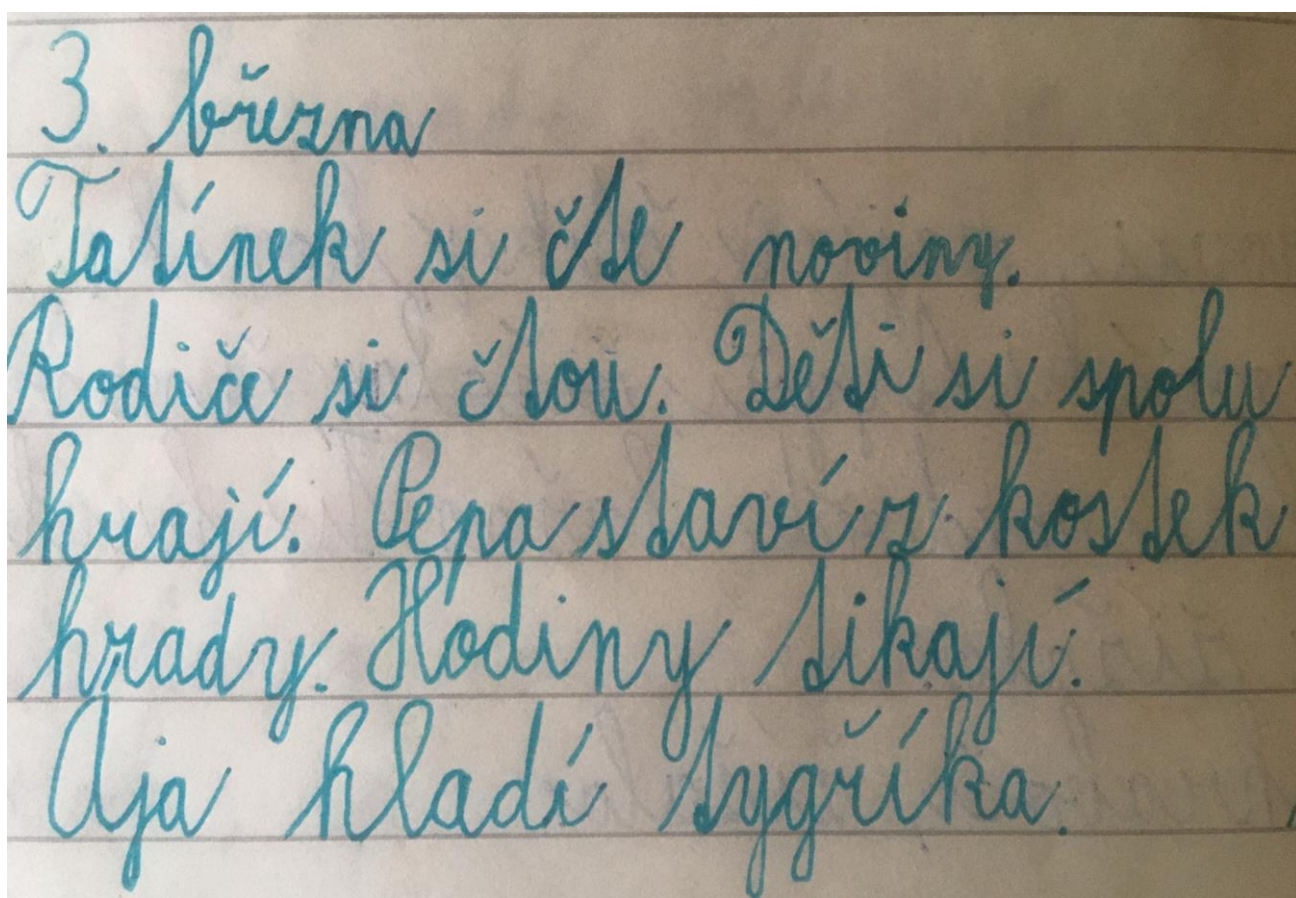 3. března
Tatínek si čte noviny.
Rodiče si čtou. Děti si spolu
hrají. Pepa staví z kostek
hrady. Hodiny tikají.
Aja hladí tygříka.